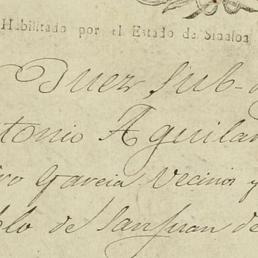 Habilitado por el Estado de Sinaloa
Juez Sub-
Antonio Aguilar
Garcia Vecinos y
blo de San Juan de